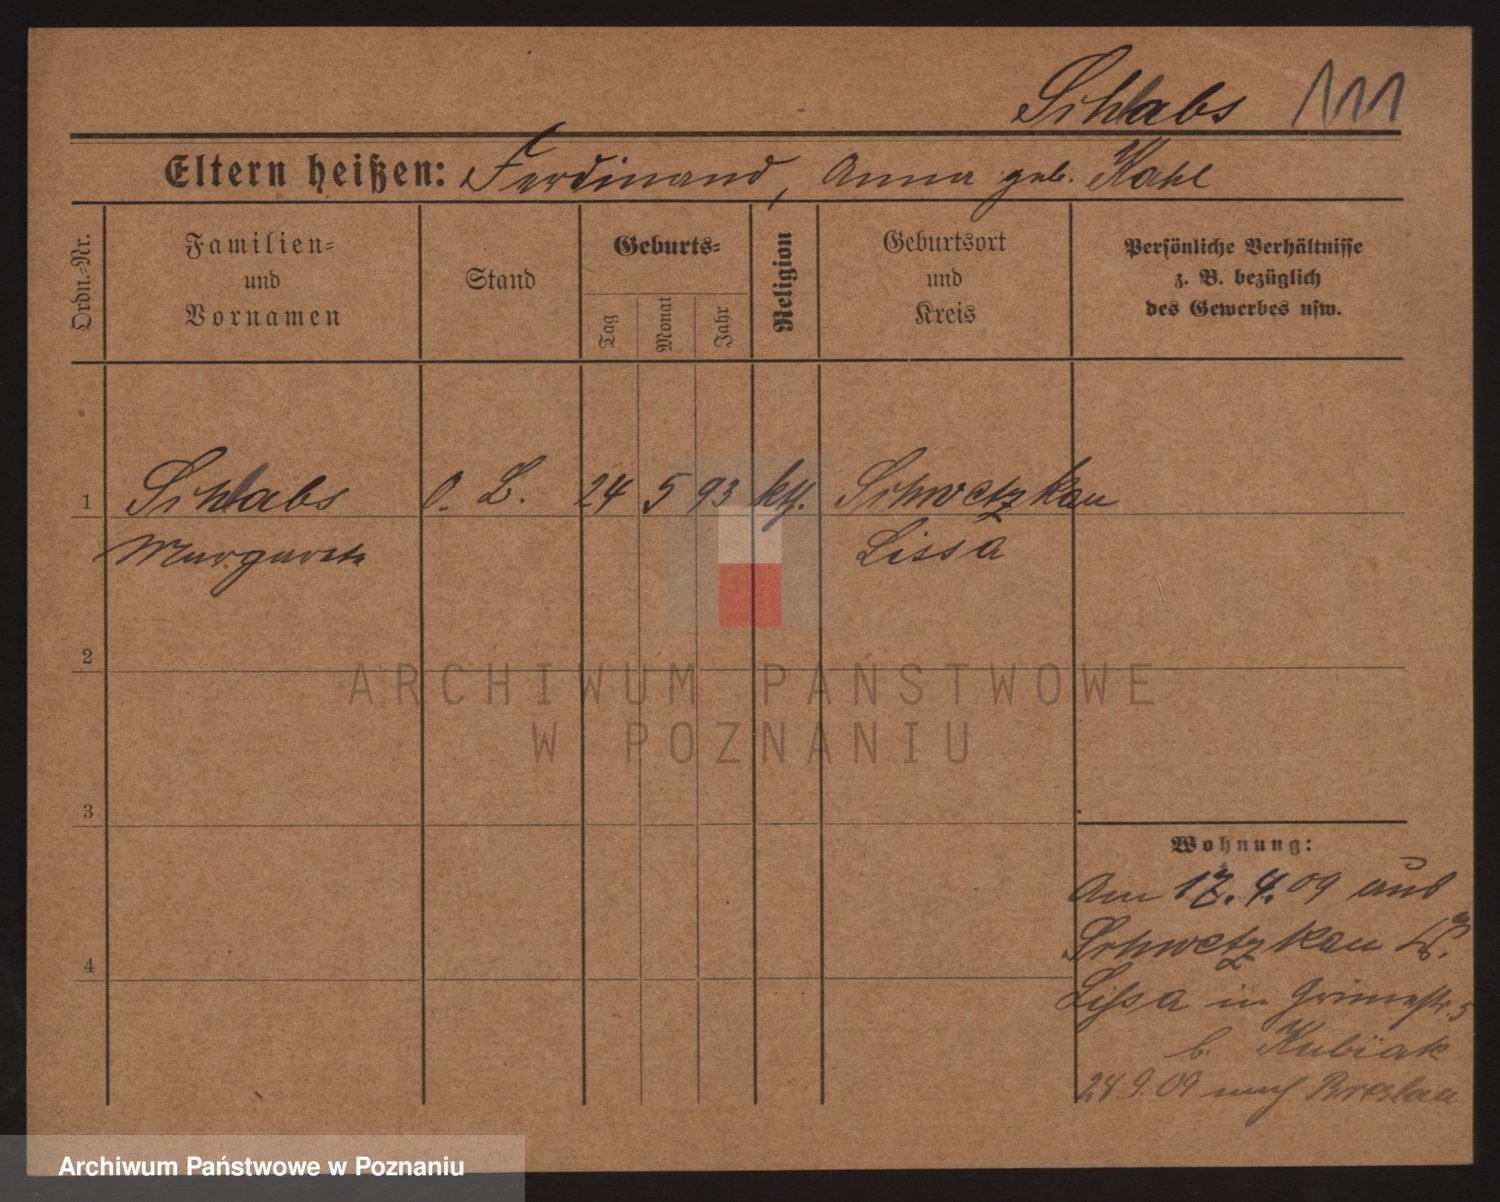 Schlabs 111
Eltern heißen: Ferdinand, Anna geb. Kahl
Ordn.-Nr.
Familien-
und
Vornamen
Stand
Geburts-
Tag
Monat
Jahr
Religion
Geburtsort
und
Kreis
Persönliche Verhältnisse
z. B. bezüglich
des Gewerbes usw.
1 Schlabs O. L. 24 5 93 kth. Schwetzkau
Margarete Lissa
2
ARCHIWUM PAŃSTWOWE
W POZNANIU
3
Wohnung:
Am 17.4.09 aus
Schwetzkau
4
Lissa in 5
b. Kubiak
24.9.09 nach Breslau
Archiwum Państwowe w Poznaniu